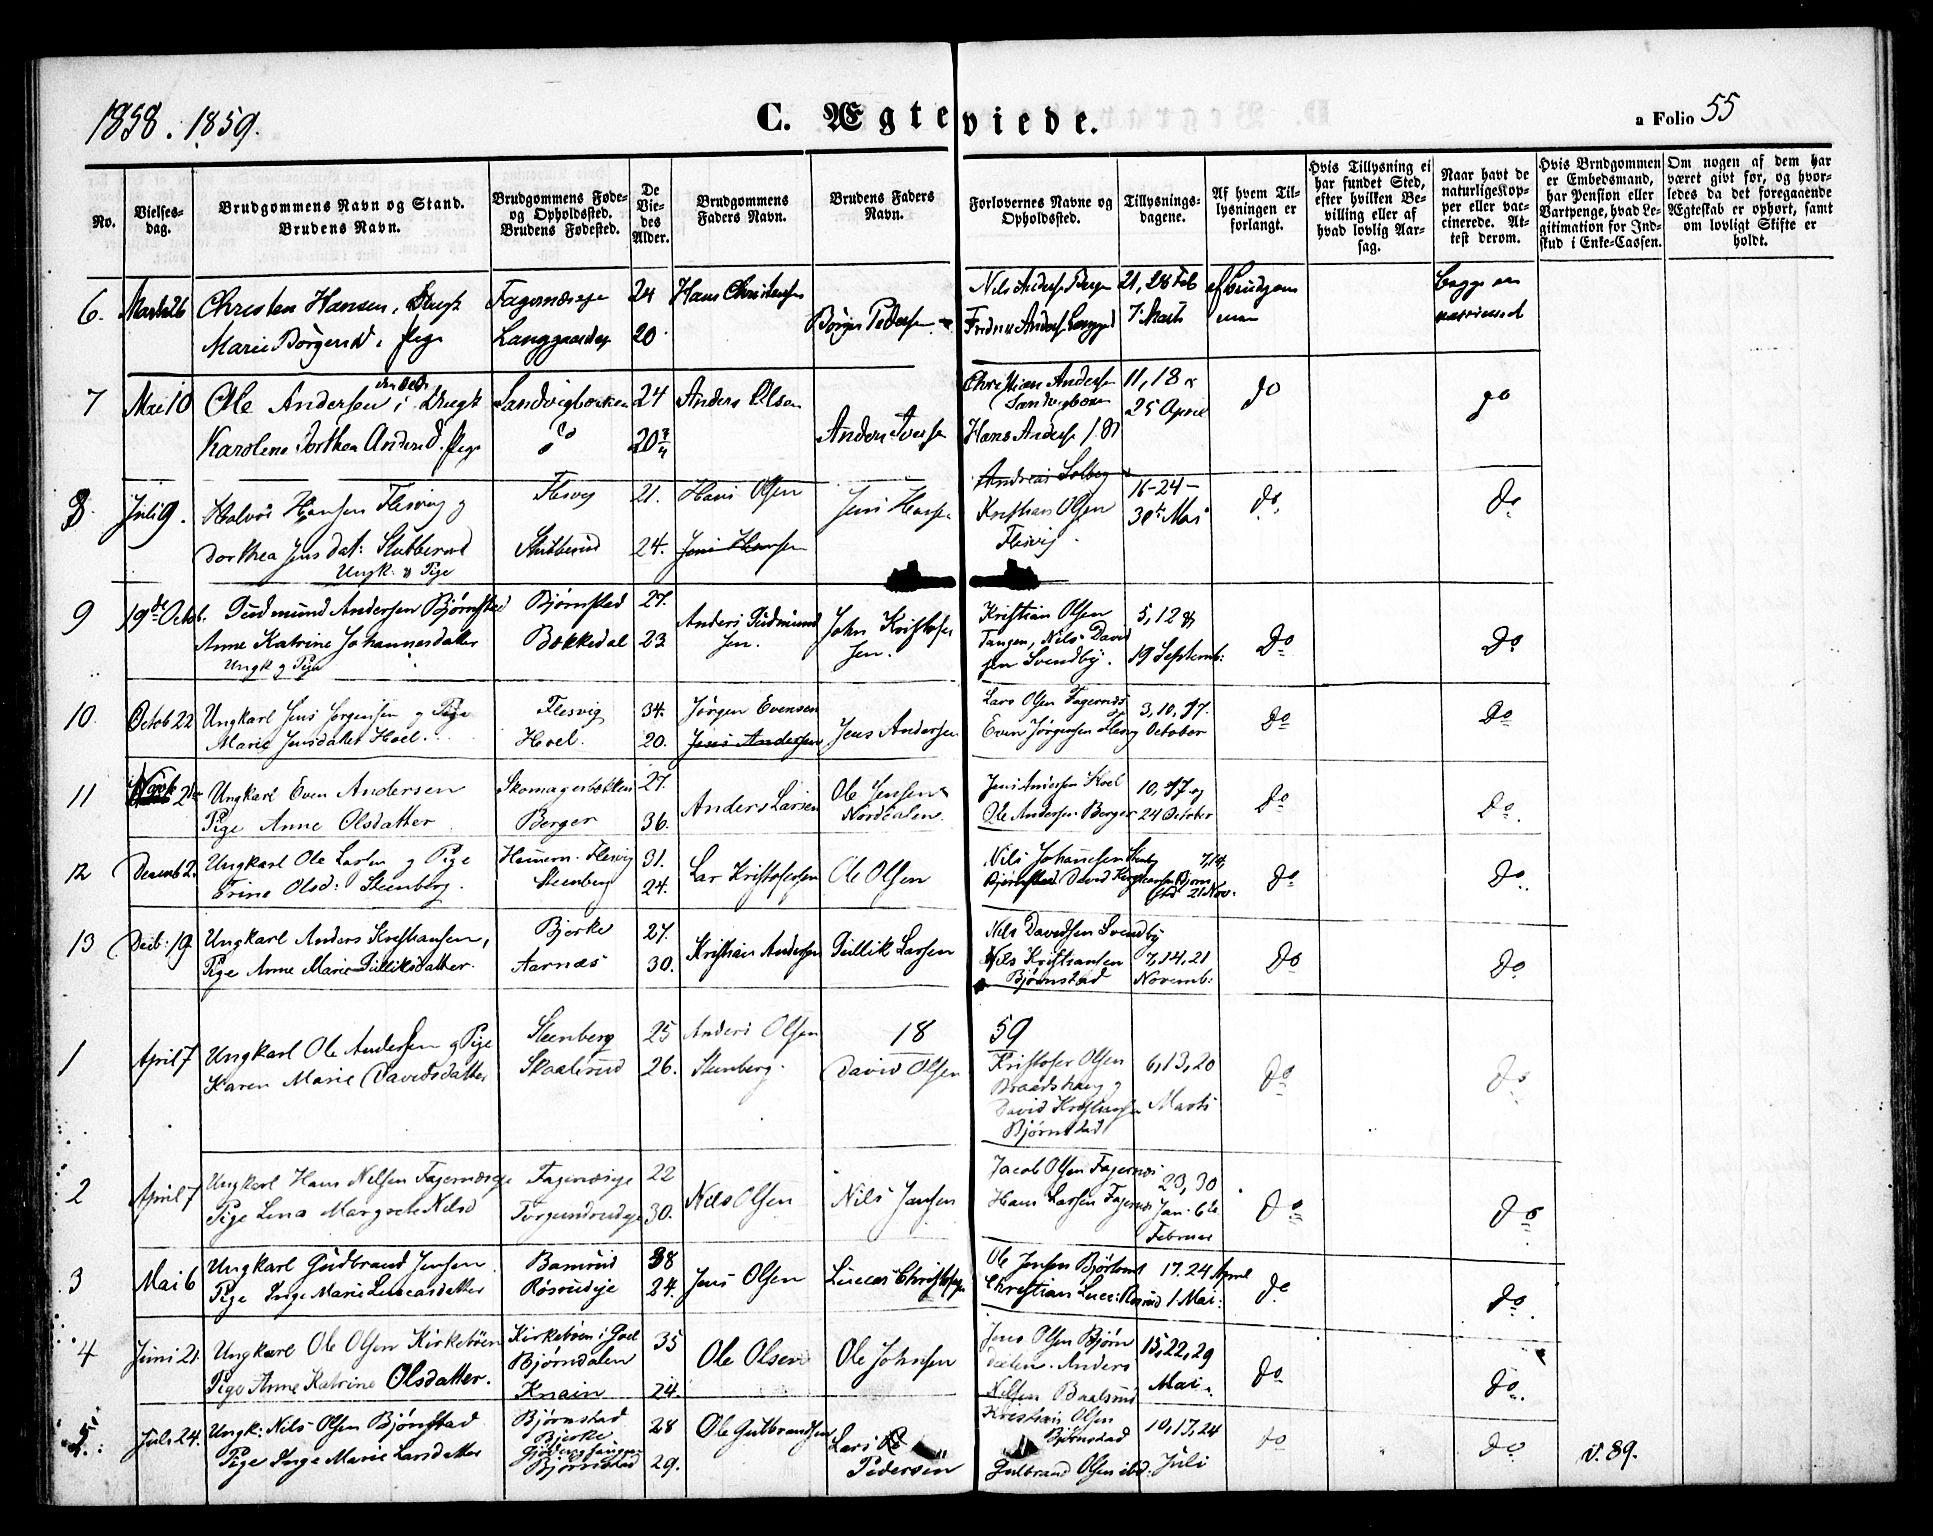 1858. 1859.
C. Ægteviede.
a Folio 55
No.
Vielses-
dag.
Brudgommens Navn og Stand.
Brudens Navn.
Brudgommens Føde-
og Opholdssted.
Brudens Fødested.
De
Vie-
des
Alder.
Brudgommens
Faders Navn.
Brudens Faders
Navn.
Forlovernes Navne og
Opholdssted.
Tillysnings-
dagene.
Af hvem Til-
lysningen er
forlangt.
Hvis Tillysning ei
har fundet Sted,
efter hvilken Be-
villing eller af
hvad lovlig Aar-
sag.
Naar havt de
naturlige Kop-
per eller vac-
cinerede. At-
test derom.
Hvis Brudgommen
er Embedsmand,
har Pension eller
Vartpenge, hvad Le-
gitimation for Ind-
skud i Enke-Cassen.
Om nogen af dem har
været givt før, og hvor-
ledes da det foregaaende
Ægteskab er ophørt, samt
om lovligt Skifte er
holdt.
6. Marts 26 Christen Hansen, Fagernæseje 24 Hans Christensen 21, 28 Feb af Brudgom Begge
Marie Börgersd. Pige Langgaardej 20 Börger Pedersen 7 Marts men vaccined
7 Mai 10 Ole Andersen Sandvigbokken 24 Anders Olsen Christian Andersen 11, 18 & do do
Karoline Dorthea Andersd. Pige do 20 Anders Iversen Hans Andersen 25 April
8 Juli 9. Halvor Hansen Flesvig og Flesvig 21. Hans Olsen Jens Hansen Andreas Solberg 16-24- do do
Dorthea Jensdat: Stubberud Stubberud 24. Jens Hansen Kristian Olsen 30te Mai
Ungk. & Pige Flesvig
9 19de Octob. Gudmund Andersen Björnstad Björnstad 27. Anders Gudmund John Kristofer Kristian Olsen 5, 12 & do do
Anne Katrine Johannesdatter Bokkedal 23 sen. sen. Tangen, Nils David 19 Septemb:
Ungk og Pige sen Svendby.
10. Octob 22 Ungkarl Jens Jørgensen og Pige Flesvig 34. Jørgen Evensen Lars Olsen Fagernæs 3, 10, 17. do do
Marie Jensdatter Hoel. Hoel. 20. Jens Andersen Jens Andersen Even Jørgensen Flesvig October
11 Ungkarl Even Andersen Skomagerbokken 27. Anders Larsen Ole Jensen Jens Andersen Hoel 10, 17 og do do
Pige Anne Olsdatter Berger 36. Norddalen Ole Andersen Berger 24 October
12 Decemb 2. Ungkarl Ole Larsen og Pige Flesvig 31. Lar Kristofersen Ole Olsen Nils Johansen 7, 14, do do
Trine Olsd: Steenberg. Steenberg 24. Björnstad. David 21 Nov.
13 Decb: 19. Ungkarl Anders Kristiansen, Bjerke 27. Kristian Andersen Gullik Larsen Nils Davidsen Svendby do do
Pige Anne Marie Gulliksdatter. Aarnæs 30. Nils Kristiansen 7, 14, 21
Björnstad Novemb:
1859
1 April 7 Ungkarl Ole Andersen og Pige Steenberg 25 Anders Olsen
Karen Marie Davidsdatter Skaalerud 26. Stenberg. David Olsen Kristofer Olsen 6, 13, 20 do do
David Kristiansen Marts
Björnstad
2 April 7 Ungkarl Hans Nilsen Fagernæseje Fagernæseje 22 Nils Olsen Nils Jansen Jacob Olsen Fagernæs 23, 30 do do
Pige Lina Margrete Nilsd Torgundrudeje 30. Hans Larsen Fagernæs Jan. 6te
Februar
3 Mai 6 Ungkarl Gudbrand Jensen Bamrud 38 Jens Olsen Lucas Christofersen Ole Jensen 17. 24 April do do
Pige Inge Marie Lucasdatter Rösrudeje 24. Christian 1 Mai:
4 Juni 21. Ungkarl Ole Olsen Kirkeböen Kirkebøen i Goel 35 Ole Olsen Ole Johnsen Jens Olsen Björn 15, 22, 29 do do
Björndalen dalen. Anders
Pige Anne Katrine Olsdatter. Knain 24. Nilsen Baalsrud Mai
5. Juli 24. Ungk: Nils Olsen Björnstad Björnstad 28 Ole Gulbrandsen Lars Kristian Olsen 10, 17, 24 do do v. 89.
Bjerke Björnstad
Pige Inge Marie Larsdatter Björnstad 29. Pedersen Gulbrand Olsen ibd: Juli